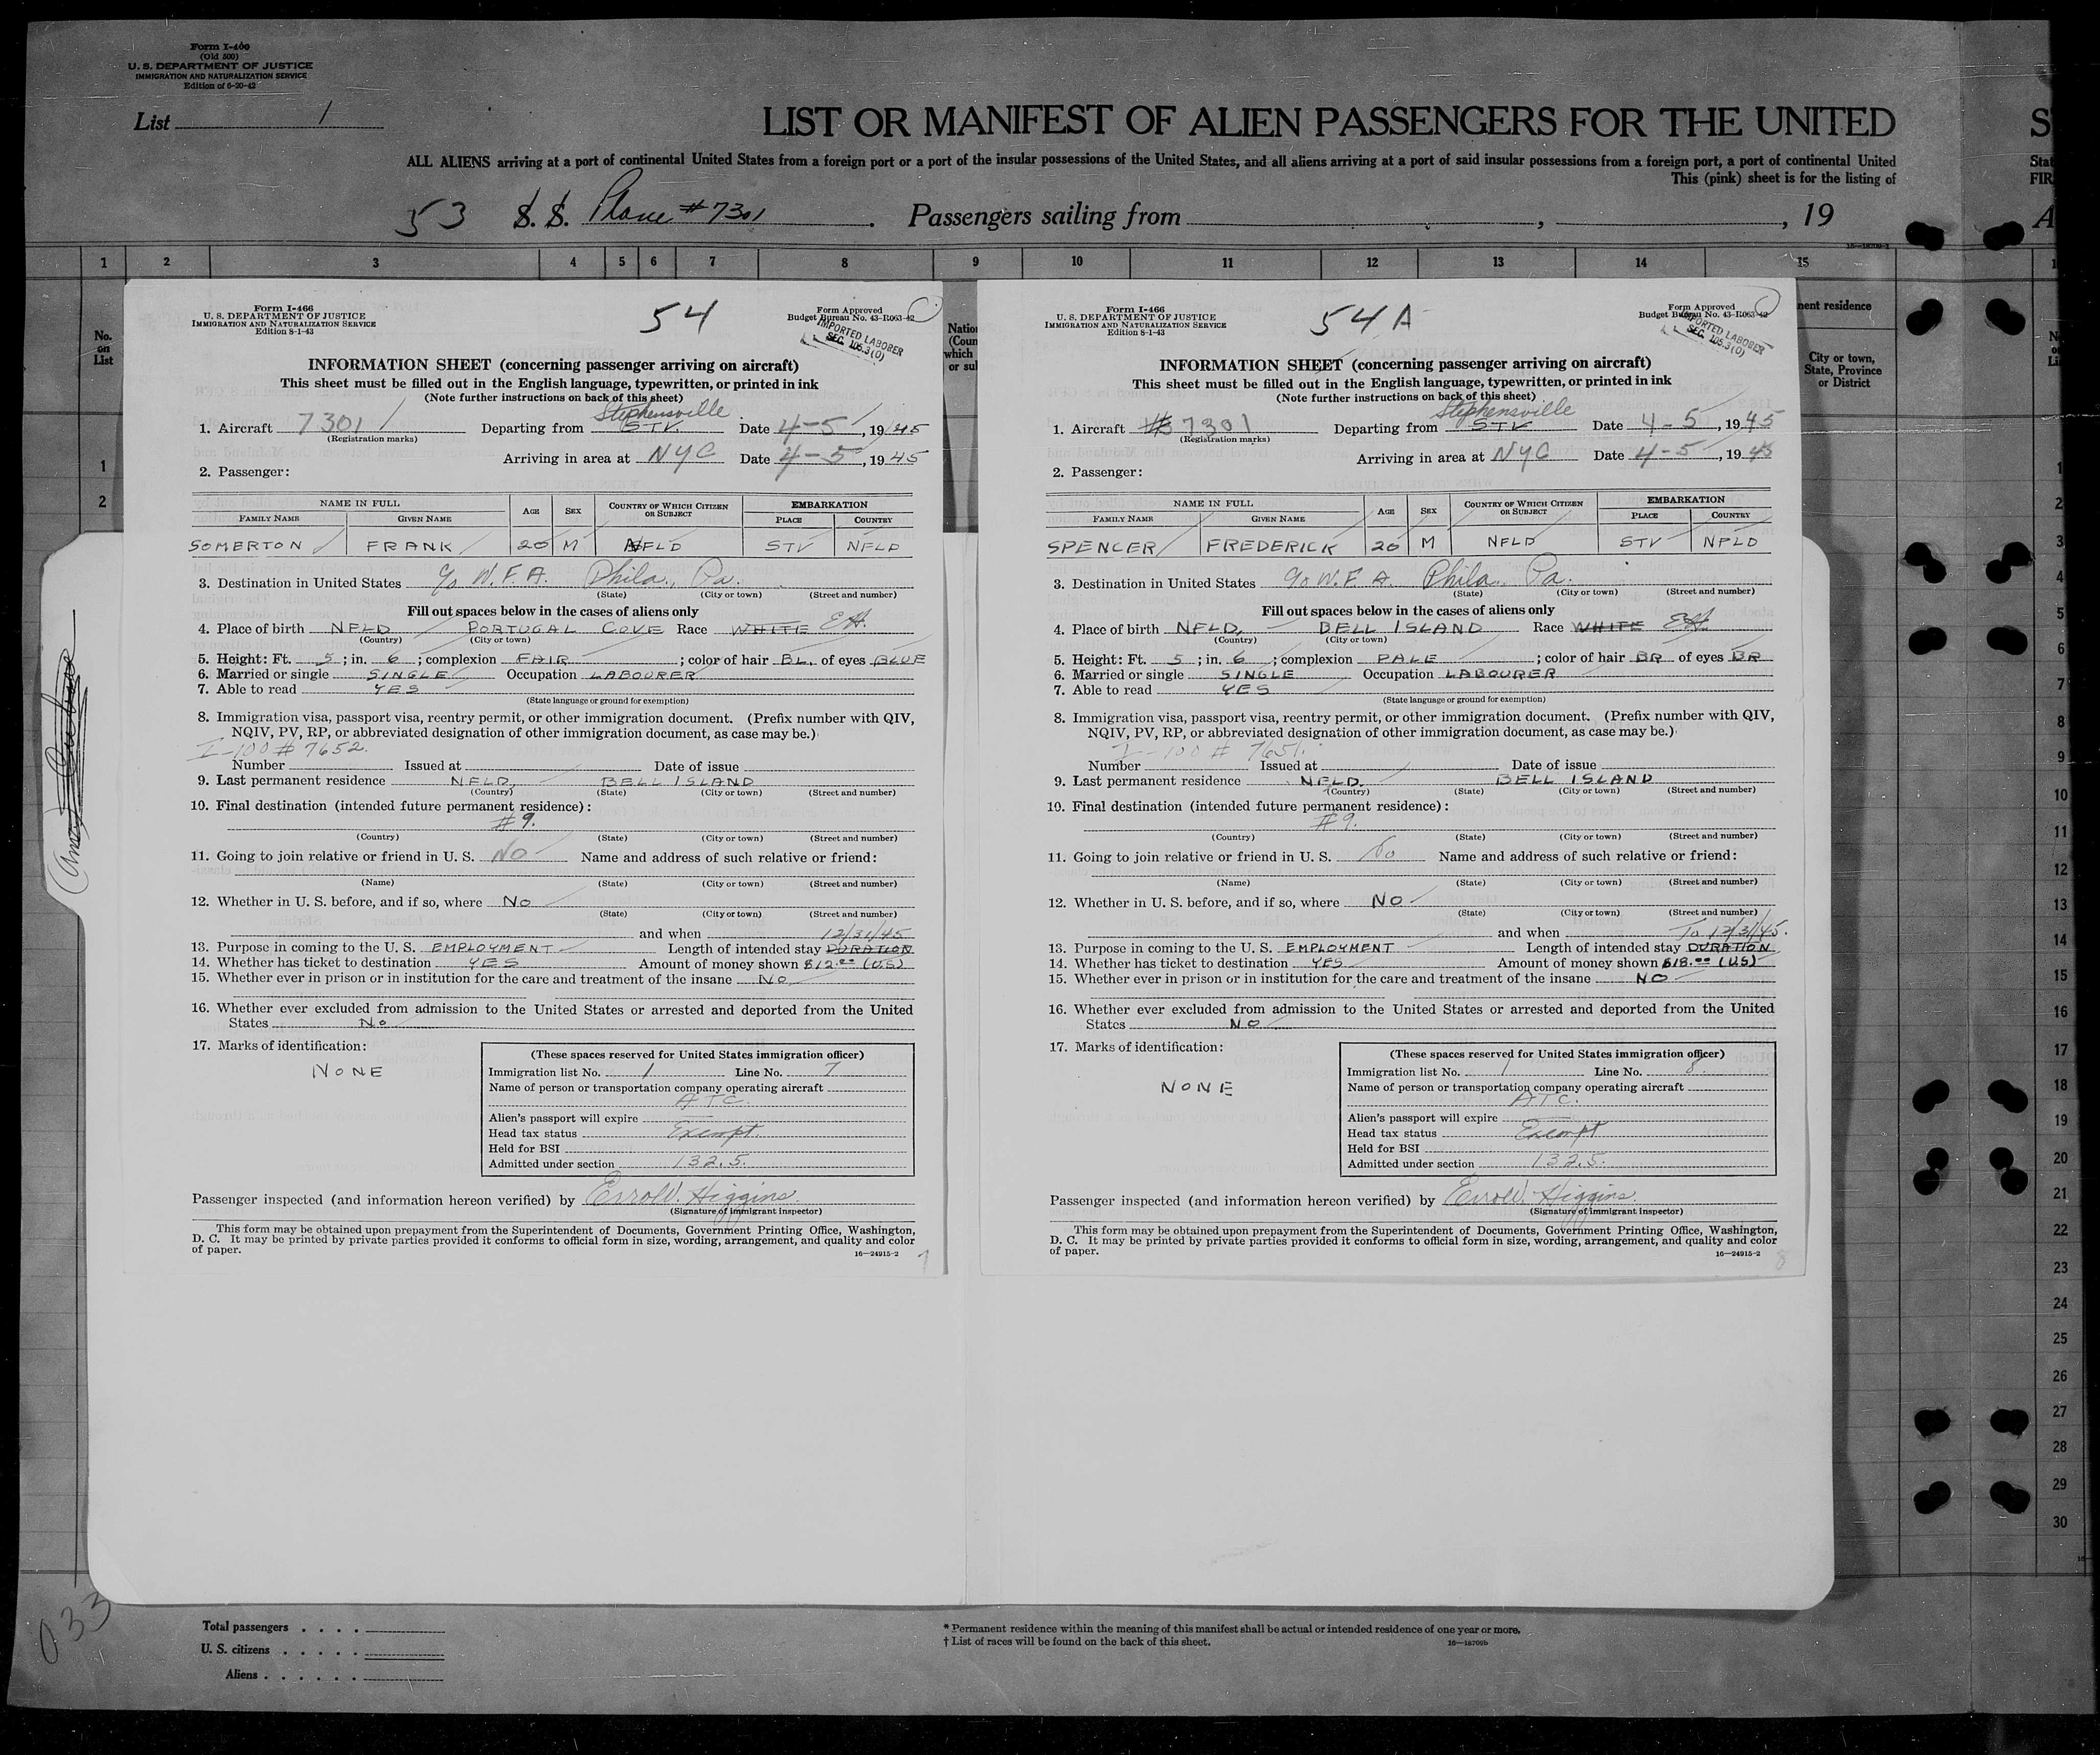 Form I-400
(Old 500)
U. S. DEPARTMENT OF JUSTICE
IMMIGRATION AND NATURALIZATION SERVICE
Edition of 6-20-42
List 1
LIST OR MANIFEST OF ALIEN PASSENGERS FOR THE UNITED
ALL ALIENS arriving at a port of continental United States from a foreign port or a port of the insular possessions of the United States, and all aliens arriving at a port of said insular possessions from a foreign port, a port of continental United
This (pink) sheet is for the listing of
53 S. S. Plane #7301. Passengers sailing from , , 19
1 2 3 4 5 6 7 8 9 10 11 12 13 14 15
No. on List
1
2
Form I-466
U. S. DEPARTMENT OF JUSTICE
IMMIGRATION AND NATURALIZATION SERVICE
Edition 8-1-43
54
Form Approved
Budget Bureau No. 43-R063-42
IMPORTED LABORER
SEC. 105.3(0)
INFORMATION SHEET (concerning passenger arriving on aircraft)
This sheet must be filled out in the English language, typewritten, or printed in ink
(Note further instructions on back of this sheet)
Stephensville
1. Aircraft 7301 Departing from STV. Date 4-5, 1945
(Registration marks)
Arriving in area at NYC Date 4-5, 1945
2. Passenger:
NAME IN FULL AGE SEX COUNTRY OF WHICH CITIZEN OR SUBJECT EMBARKATION
FAMILY NAME GIVEN NAME PLACE COUNTRY
SOMERTON FRANK 20 M NFLD STV NFLD
3. Destination in United States c/o W.F.A. Phila., Pa.
(State) (City or town) (Street and number)
Fill out spaces below in the cases of aliens only
4. Place of birth NFLD PORTUGAL COVE Race WHITE EH.
(Country) (City or town)
5. Height: Ft. 5; in. 6; complexion FAIR; color of hair BL. of eyes BLUE
6. Married or single SINGLE Occupation LABOURER
7. Able to read YES
(State language or ground for exemption)
8. Immigration visa, passport visa, reentry permit, or other immigration document. (Prefix number with QIV,
NQIV, PV, RP, or abbreviated designation of other immigration document, as case may be.)
I-100 # 7652.
Number Issued at Date of issue
9. Last permanent residence NFLD, BELL ISLAND
(Country) (State) (City or town) (Street and number)
10. Final destination (intended future permanent residence):
#9.
(Country) (State) (City or town) (Street and number)
11. Going to join relative or friend in U. S. No Name and address of such relative or friend:
(Name) (State) (City or town) (Street and number)
12. Whether in U. S. before, and if so, where No
(State) (City or town) (Street and number)
and when 12/31/45
13. Purpose in coming to the U. S. EMPLOYMENT Length of intended stay DURATION
14. Whether has ticket to destination YES Amount of money shown $12.00 (U.S)
15. Whether ever in prison or in institution for the care and treatment of the insane No
16. Whether ever excluded from admission to the United States or arrested and deported from the United
States No
17. Marks of identification:
NONE
(These spaces reserved for United States immigration officer)
Immigration list No. 1 Line No. 7
Name of person or transportation company operating aircraft
ATC.
Alien's passport will expire
Head tax status Exempt.
Held for BSI
Admitted under section 132.5.
Passenger inspected (and information hereon verified) by Errol W. Higgins.
(Signature of immigrant inspector)
This form may be obtained upon prepayment from the Superintendent of Documents, Government Printing Office, Washington,
D. C. It may be printed by private parties provided it conforms to official form in size, wording, arrangement, and quality and color
of paper.
16—24915-2
7
Form I-466
U. S. DEPARTMENT OF JUSTICE
IMMIGRATION AND NATURALIZATION SERVICE
Edition 8-1-43
54A
Form Approved
Budget Bureau No. 43-R063-42
IMPORTED LABORER
SEC. 105.3(0)
INFORMATION SHEET (concerning passenger arriving on aircraft)
This sheet must be filled out in the English language, typewritten, or printed in ink
(Note further instructions on back of this sheet)
Stephensville
1. Aircraft #7301 Departing from STV Date 4-5, 1945
(Registration marks)
Arriving in area at NYC Date 4-5, 1945
2. Passenger:
NAME IN FULL AGE SEX COUNTRY OF WHICH CITIZEN OR SUBJECT EMBARKATION
FAMILY NAME GIVEN NAME PLACE COUNTRY
SPENCER FREDERICK 26 M NFLD STV NFLD
3. Destination in United States c/o W.F.A. Phila. Pa.
(State) (City or town) (Street and number)
Fill out spaces below in the cases of aliens only
4. Place of birth NFLD, BELL ISLAND Race WHITE EH.
(Country) (City or town)
5. Height: Ft. 5; in. 6; complexion PALE; color of hair BR of eyes BR
6. Married or single SINGLE Occupation LABOURER
7. Able to read YES
(State language or ground for exemption)
8. Immigration visa, passport visa, reentry permit, or other immigration document. (Prefix number with QIV,
NQIV, PV, RP, or abbreviated designation of other immigration document, as case may be.)
I-100 # 7651.
Number Issued at Date of issue
9. Last permanent residence NFLD. BELL ISLAND
(Country) (State) (City or town) (Street and number)
10. Final destination (intended future permanent residence):
#9.
(Country) (State) (City or town) (Street and number)
11. Going to join relative or friend in U. S. No Name and address of such relative or friend:
(Name) (State) (City or town) (Street and number)
12. Whether in U. S. before, and if so, where NO
(State) (City or town) (Street and number)
and when To 12/31/45.
13. Purpose in coming to the U. S. EMPLOYMENT Length of intended stay DURATION
14. Whether has ticket to destination YES Amount of money shown $18.00 (U.S)
15. Whether ever in prison or in institution for the care and treatment of the insane NO
16. Whether ever excluded from admission to the United States or arrested and deported from the United
States NO
17. Marks of identification:
NONE
(These spaces reserved for United States immigration officer)
Immigration list No. 1 Line No. 8.
Name of person or transportation company operating aircraft
ATC.
Alien's passport will expire
Head tax status Exempt
Held for BSI
Admitted under section 132.5.
Passenger inspected (and information hereon verified) by Errol W. Higgins.
(Signature of immigrant inspector)
This form may be obtained upon prepayment from the Superintendent of Documents, Government Printing Office, Washington,
D. C. It may be printed by private parties provided it conforms to official form in size, wording, arrangement, and quality and color
of paper.
16—24915-2
8
nent residence
City or town,
State, Province
or District
1
2
3
4
5
6
7
8
9
10
11
12
13
14
15
16
17
18
19
20
21
22
23
24
25
26
27
28
29
30
033
Total passengers . . . .
U. S. citizens . . . . .
Aliens . . . . . .
* Permanent residence within the meaning of this manifest shall be actual or intended residence of one year or more.
† List of races will be found on the back of this sheet.
16—18709b